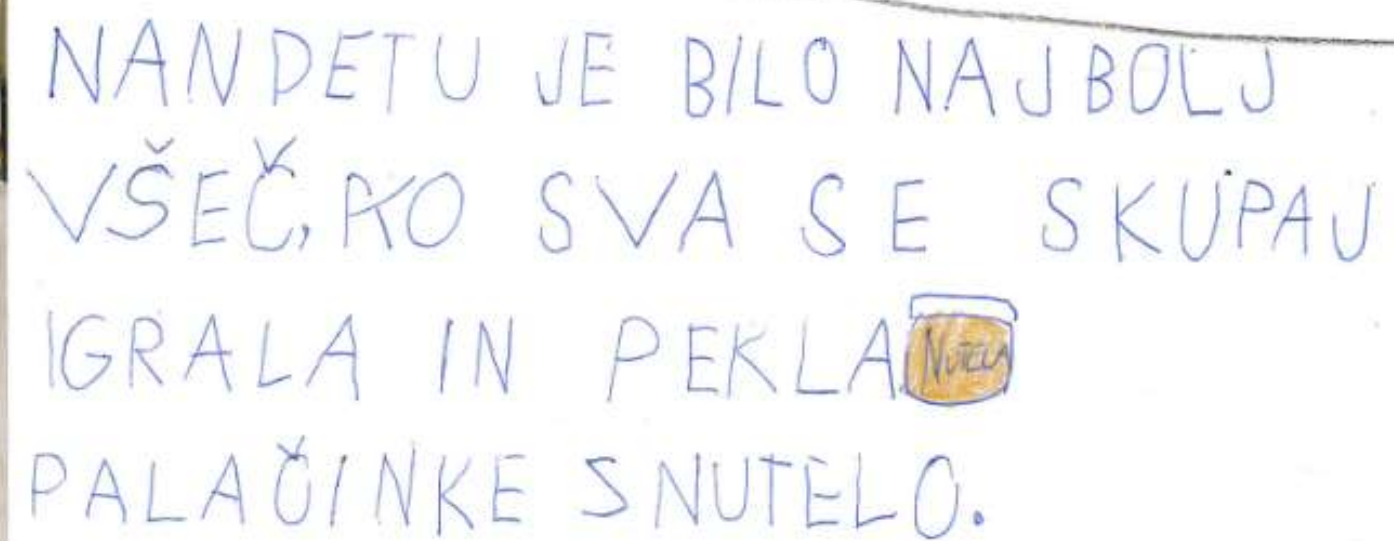 NANDETU JE BILO NAJBOLJ
VŠEČ, KO SVA SE SKUPAJ
IGRALA IN PEKLA NUTELA
PALAČINKE S NUTELO.